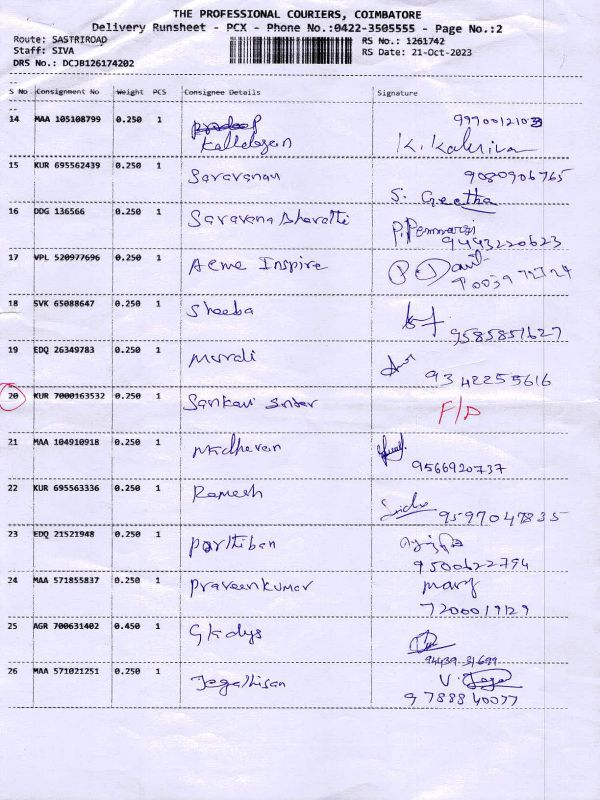 THE PROFESSIONAL COURIERS, COIMBATORE
Delivery Runsheet - PCX - Phone No.:0422-3505555 - Page No.:2
Route: SASTRIROAD RS No.: 1261742
Staff: SIVA RS Date: 21-Oct-2023
DRS No.: DCJB126174202
S No Consignment No Weight PCS Consignee Details Signature
14 MAA 105108799 0.250 1 Pradeep 9970012103
K.
15 KUR 695562439 0.250 1 Saravanan 9080906765
S. Geetha
16 DDG 136566 0.250 1 Saravana Bharathi
9443220623
17 VPL 520977696 0.250 1 Acme Inspire
18 SVK 65088647 0.250 1 Sheeba
9585851627
19 EDQ 26349783 0.250 1 Murali
9342255616
20 KUR 7000163532 0.250 1 F/D
21 MAA 104910918 0.250 1 Madhavan
9566920737
22 KUR 695563336 0.250 1 Ramesh
9597047835
23 EDQ 21521948 0.250 1 Parthiban
9500622794
24 MAA 571855837 0.250 1 Praveenkumar
7200019129
25 AGR 700631402 0.450 1 Gladys
94439 31699
26 MAA 571021251 0.250 1 Jegathisan V.
9788840077